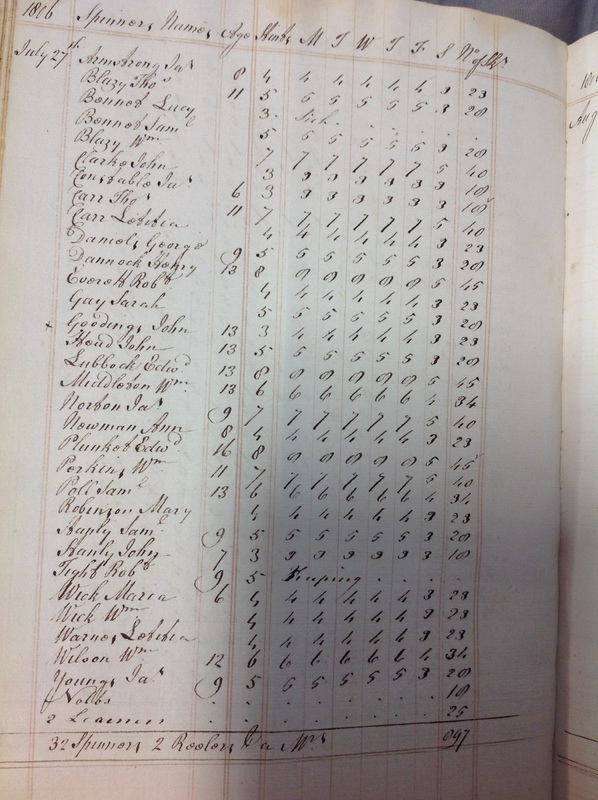 1806 Spinners Names Age Hank M T W T F S No of Sks
July 27th Armstrong Jas 8 4 4 4 4 4 4 3 23
Blazy Thos 11 5 5 5 5 5 5 3 28
Bennet Lucy 3 Sick . . . . .
Bennet Saml 5 5 5 5 5 5 3 28
Blazy Wm 7 7 7 7 7 7 5 40
Clarke John 3 3 3 3 3 3 3 18
Constable Jas 6 3 3 3 3 3 3 3 18
Carr Thos 11 7 7 7 7 7 7 5 40
Carr Letitia 4 4 4 4 4 4 3 23
Daniels George 9 5 5 5 5 5 5 3 28
Dannock Henry 13 8 8 8 8 8 8 5 45
Everett Robt 4 4 4 4 4 4 3 23
Gay Sarah 5 5 5 5 5 5 3 28
x Goodings John 13 3 4 4 4 4 4 3 23
Head John 13 5 5 5 5 5 5 3 28
Lubbock Edwd 13 8 8 8 8 8 8 5 45
Middleton Wm 13 6 6 6 6 6 6 4 34
Norton Jas 9 7 7 7 7 7 7 5 40
Newman Ann 8 4 4 4 4 4 4 3 23
Plunket Edwd 16 8 8 8 8 8 8 5 45
Perkins Wm 11 7 7 7 7 7 7 5 40
Poll Saml 13 6 6 6 6 6 6 4 34
Robinson Mary 4 4 4 4 4 4 3 23
Staply Saml 9 5 5 5 5 5 5 3 28
Stanly John 7 3 3 3 3 3 3 3 18
Tight Robt 9 5 Keeping . . . .
Wick Maria 6 4 4 4 4 4 4 3 23
Wick Wm 4 4 4 4 4 4 3 23
Warnes Letitia 4 4 4 4 4 4 3 23
Wilson Wm 12 6 6 6 6 6 6 4 34
Youngs Jas 9 5 5 5 5 5 5 3 28
J Nobbs . . . . . . . . 18
2 Learners . . . . . . . . 25
32 Spinners 2 Reelers 897